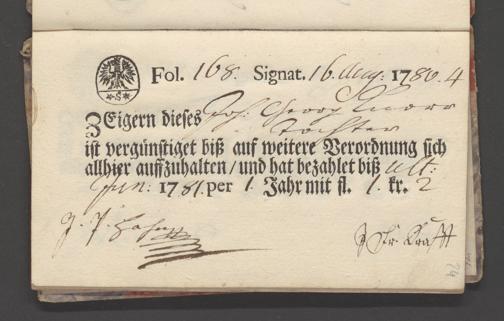 Fol. 168. Signat. 16. Aug: 1780. 4
Zeigern dieses Joh: Georg Knorr
Tochter
ist vergünstiget biß auf weitere Verordnung sich
allhier auffzuhalten / und hat bezahlet biß ult:
Jun: 1781. per 1. Jahr mit fl. 1. kr. 2
J. P. Hahn
Krafft